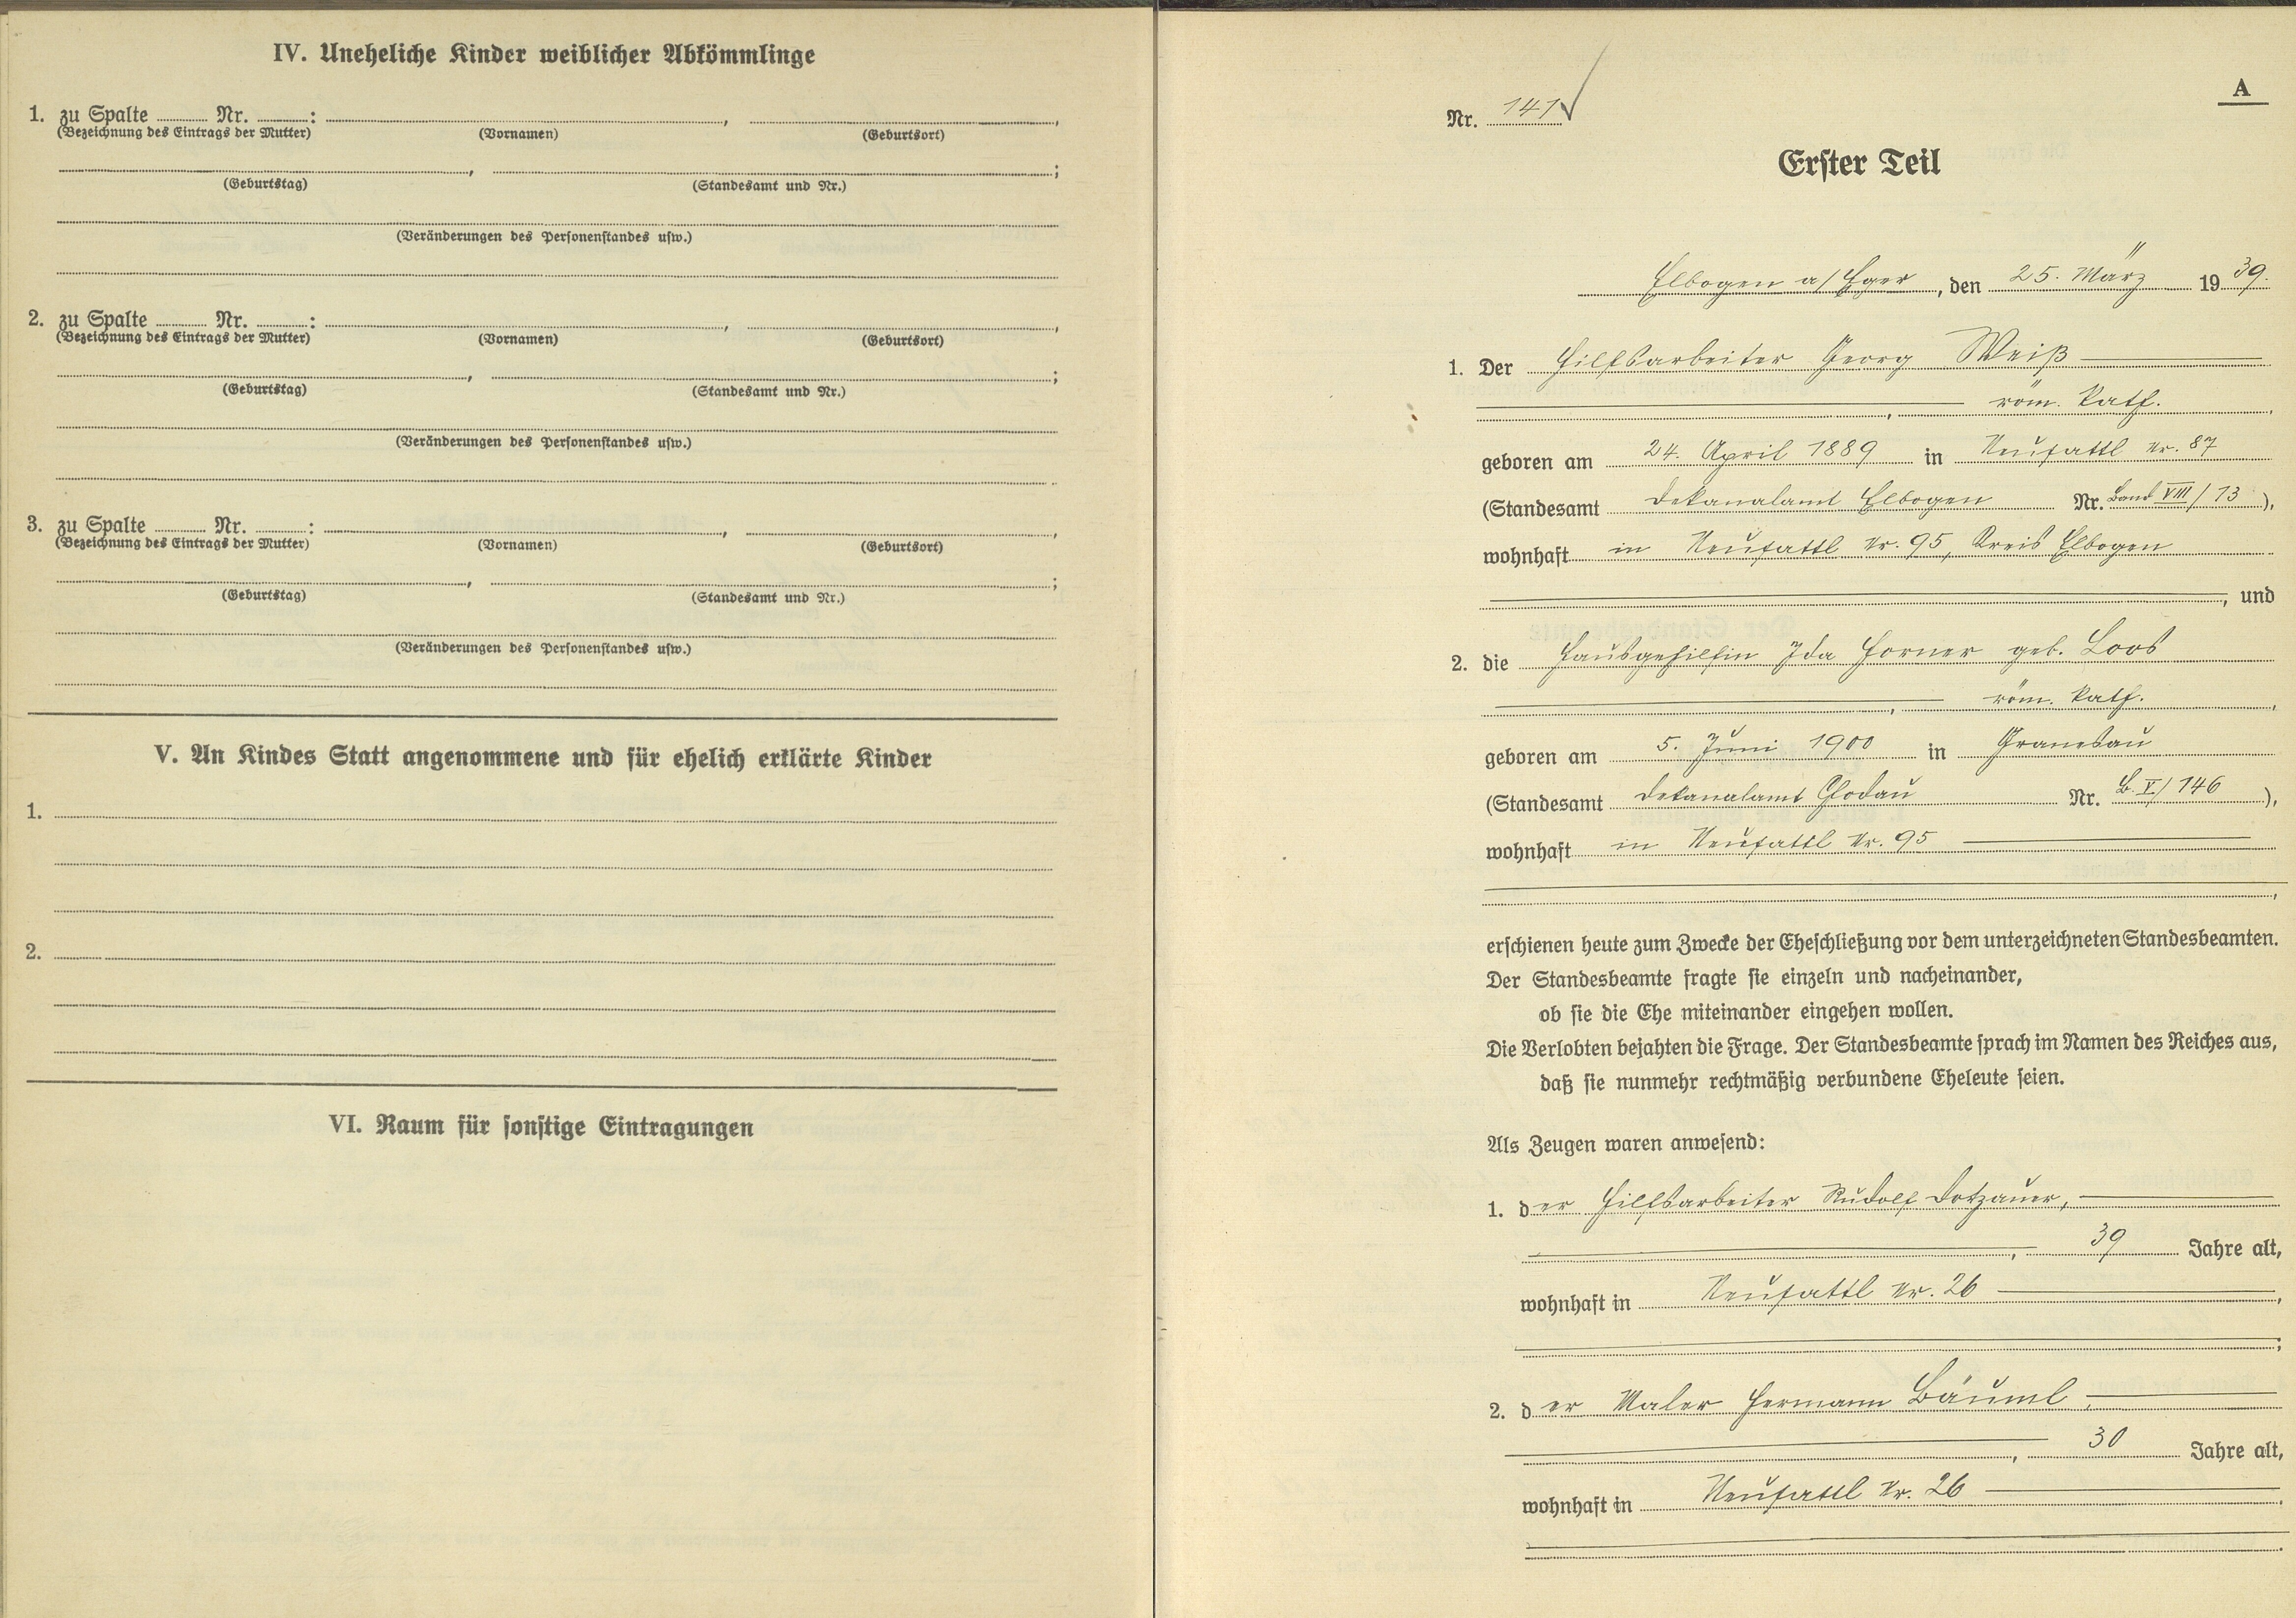 IV. Uneheliche Kinder weiblicher Abkömmlinge
1. zu Spalte ........ Nr. ........: ........, ........,
(Bezeichnung des Eintrags der Mutter) (Vornamen) (Geburtsort)
........, ........;
(Geburtstag) (Standesamt und Nr.)
(Veränderungen des Personenstandes usw.)
2. zu Spalte ........ Nr. ........: ........, ........,
(Bezeichnung des Eintrags der Mutter) (Vornamen) (Geburtsort)
........, ........;
(Geburtstag) (Standesamt und Nr.)
(Veränderungen des Personenstandes usw.)
3. zu Spalte ........ Nr. ........: ........, ........,
(Bezeichnung des Eintrags der Mutter) (Vornamen) (Geburtsort)
........, ........;
(Geburtstag) (Standesamt und Nr.)
(Veränderungen des Personenstandes usw.)
V. An Kindes Statt angenommene und für ehelich erklärte Kinder
1.
2.
VI. Raum für sonstige Eintragungen
A
Nr. 141
Erster Teil
Elbogen a/Eger, den 25. März 1939.
1. Der Hilfsarbeiter Georg Weiß
, röm. kath.,
geboren am 24. April 1889 in Neusattl Nr. 87
(Standesamt Dekanalamt Elbogen Nr. Band VIII/13),
wohnhaft in Neusattl Nr. 95, Kreis Elbogen
, und
2. die Hausgehilfin Ida Horner geb. Loos
, röm. kath.,
geboren am 5. Juni 1900 in Granesau
(Standesamt Dekanalamt Chodau Nr. B. V/146),
wohnhaft in Neusattl Nr. 95
,
erschienen heute zum Zwecke der Eheschließung vor dem unterzeichneten Standesbeamten.
Der Standesbeamte fragte sie einzeln und nacheinander,
ob sie die Ehe miteinander eingehen wollen.
Die Verlobten bejahten die Frage. Der Standesbeamte sprach im Namen des Reiches aus,
daß sie nunmehr rechtmäßig verbundene Eheleute seien.
Als Zeugen waren anwesend:
1. der Hilfsarbeiter Rudolf Dotzauer,
, 39 Jahre alt,
wohnhaft in Neusattl Nr. 26,
;
2. der Maler Hermann Bäuml,
, 30 Jahre alt,
wohnhaft in Neusattl Nr. 26.